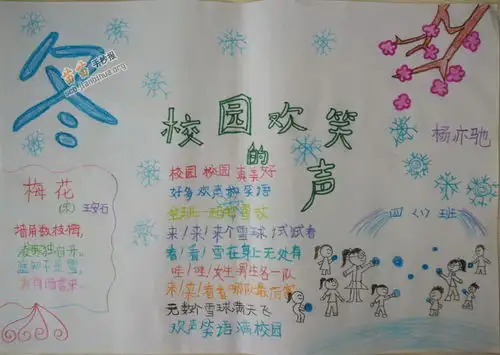 冬
校园的欢笑声
杨亦驰
四(1)班
梅花
(宋) 王安石
墙角数枝梅,
凌寒独自开。
遥知不是雪,
为有暗香来。
校园 校园 真美好
好多欢声和笑语
来!来!来个雪球试试看
看!看!雪在掌上无处有
哇!哇!女生男生各一队
来!来!看看哪队最厉害
无数个雪球满天飞
欢声笑语满校园